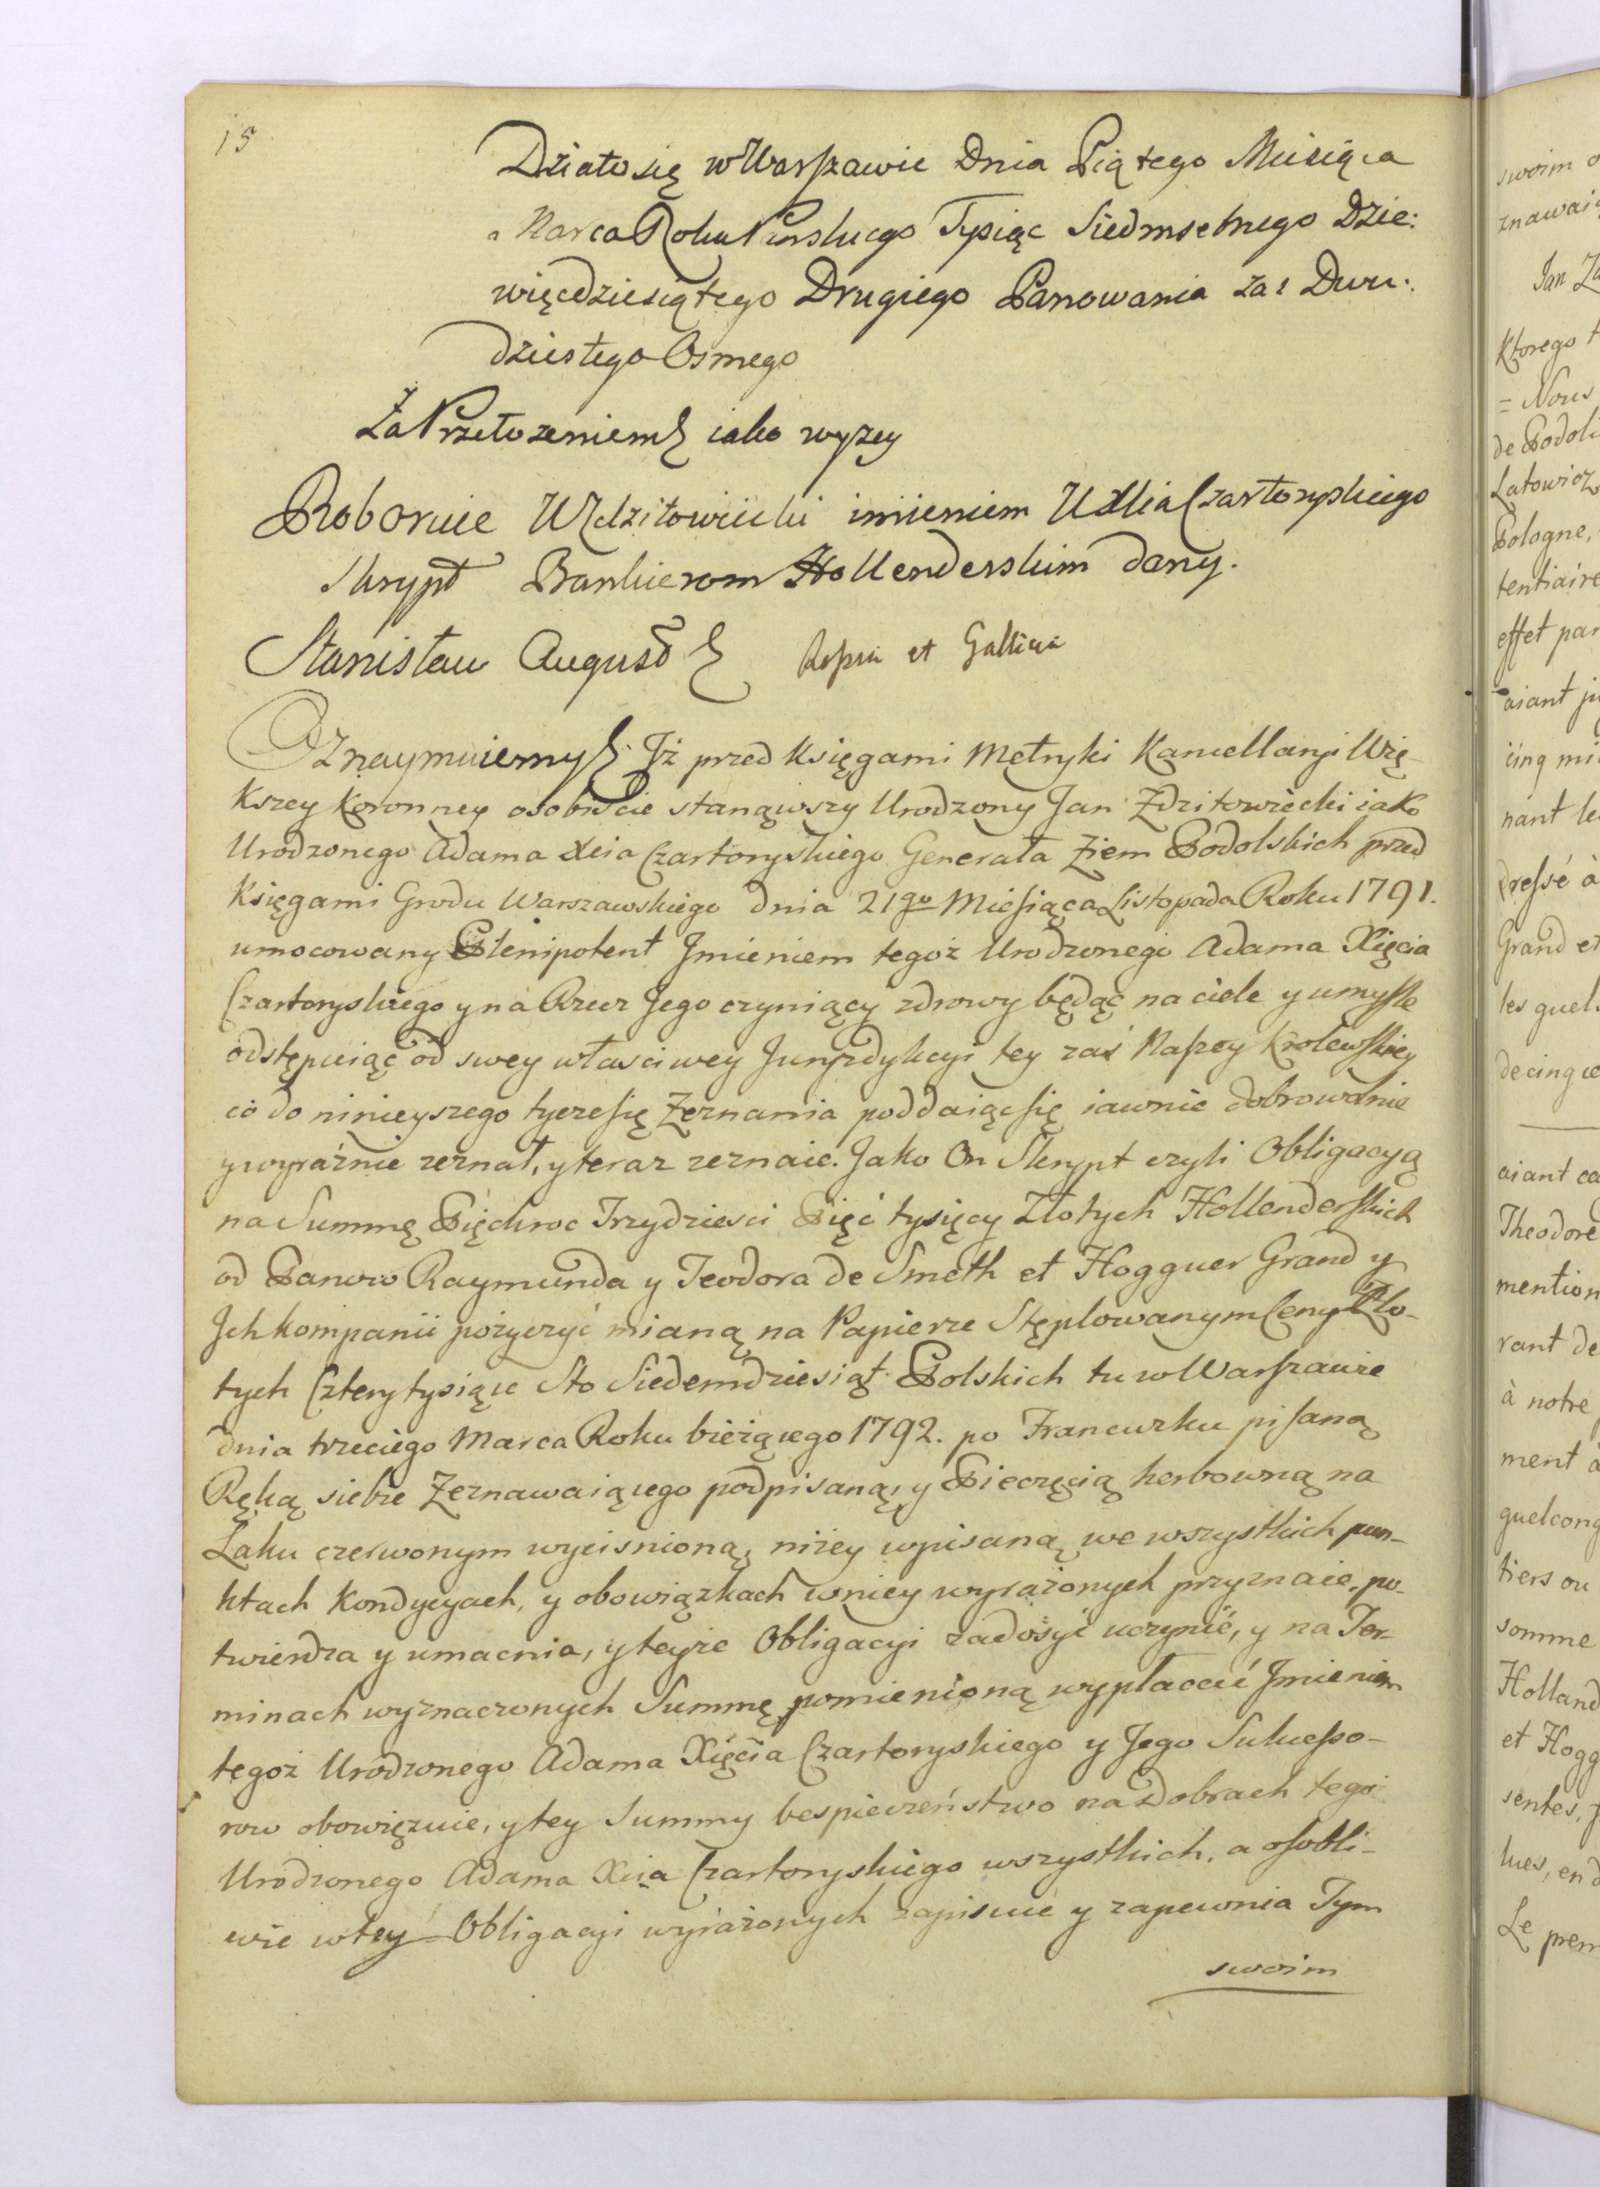 15
Działo się w Warszawie Dnia Piątego Miesiąca
Marca Roku Pańskiego Tysiąc Siedmsetnego Dzie:
więcdziesiątego Drugiego Panowania zaś Dwu:
dziestego Osmego
Za Przełożeniem jako wyzey
Roboruie Ur Zdzitowiecki imieniem UXcia Czartoryskiego
Skrypt Bankierom Hollenderskim dany.
Stanisław August et Gallicia
Oznaymuiemy Iż przed Księgami Metryki Kancellaryi Wię-
kszey Koronney osobiście stanąwszy Urodzony Jan Zdzitowiecki iako
Urodzonego Adama Xcia Czartoryskiego Generała Ziem Podolskich przed
Księgami Grodu Warszawskiego dnia 21go Miesiąca Listopada Roku 1791.
umocowany Plenipotent Jmieniem tegoż Urodzonego Adama Xięcia
Czartoryskiego y na Rzecz Jego czyniący zdrowy będąc na ciele y umyśle
odstępuiąc od swey właściwey Juryzdykcyi tey zaś Naszey Krolewskiey
co do ninieyszego tycze się Zeznania poddaiąc się iawnie dobrowolnie
y wyraźnie zeznał, y teraz zeznaie. Jako On Skrypt czyli Obligacyą
na Summę Pięćkroc Trzydziesci Pięć tysięcy Złotych Hollenderskich
od Panow Raymunda y Teodora de Smeth et Hogguer Grand y
Jch kompanii pożyczyć mianą na Papierze Stęplowanym Ceny Zło-
tych Cztery tysiące Sto Siedemdziesiąt Polskich tu w Warszawie
dnia trzeciego Marca Roku bieżącego 1792. po Francuzku pisaną
Ręką siebie Zeznawaiącego podpisaną, y Pieczęcią herbowną na
Laku czerwonym wycisnioną, niżey wpisaną we wszystkich pun-
ktach Kondycyach, y obowiązkach w niey wyrażonych przyznaie, po-
twierdza y umacnia, y teyże Obligacyi zadosyć uczynić, y na Ter-
minach wyznaczonych Summę pomienioną wypłacić Jmieniem
tegoż Urodzonego Adama Xięcia Czartoryskiego y Jego Sukcesso-
row obowięzuie, y tey Summy bespieczeństwo na Dobrach tegoż
Urodzonego Adama Xcia Czartoryskiego wszystkich, a osobli-
wie w tey Obligacyi wyrażonych zapisuie y zapewnia Tym
swoim
swoim
Jan
Ktorego
= Nous
de Podoli
Latowicz
Pologne,
tentiaire
effet par
aiant
cinq
nant
dressé à
Grand et
les quel
de cinq
aiant
Theodore
mention
rant de
à notre
ment à
quelconq
tiers ou
somme
Holland
et Hogg
sentes,
lues, en
Le prem